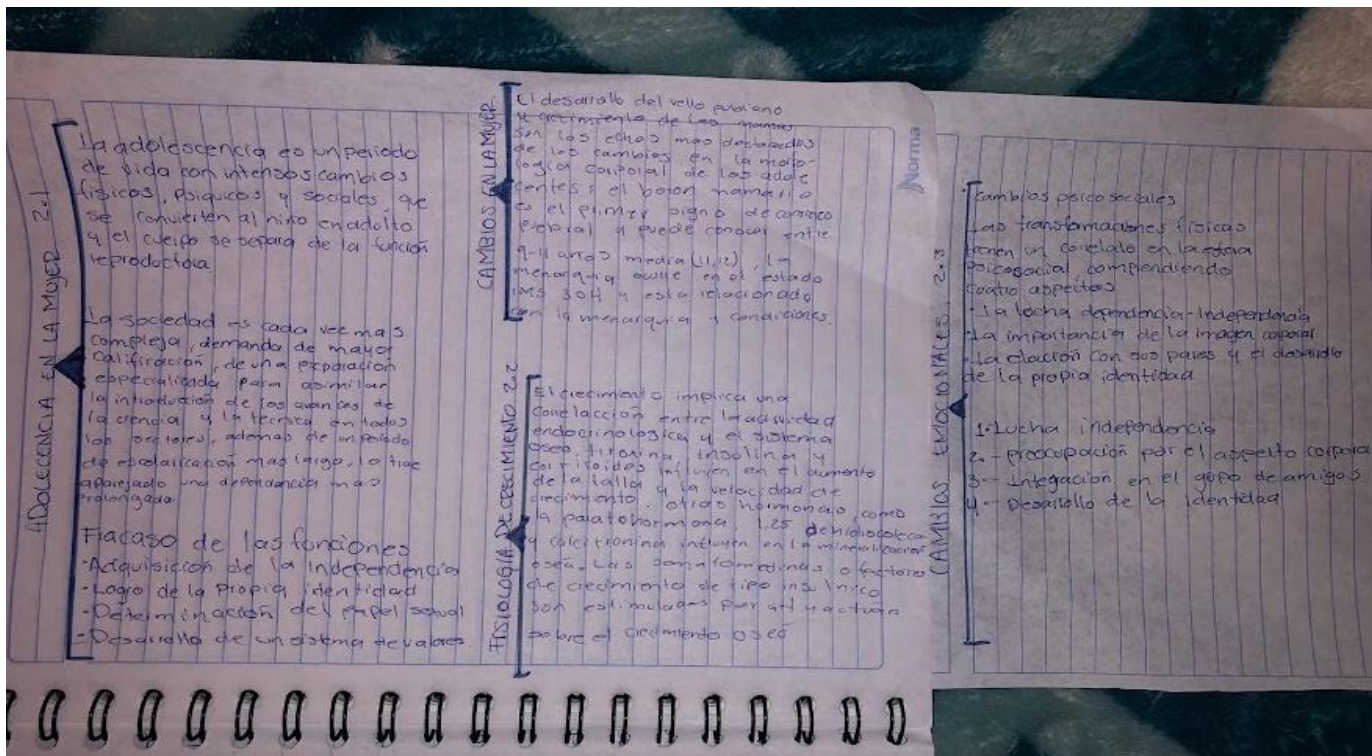 ADOLECENCIA EN LA MUJER 2.1
La adolescencia es un periodo
de vida con intensos cambios
fisicos, psiquicos y sociales, que
se convierten al niño en adulto
y el cuerpo se separa de la función
reproductora.
La sociedad es cada vez mas
compleja, demanda de mayor
calificación, de una preparación
especializada para asimilar
la introducción de los avances de
la ciencia y la tecnica en todos
los sectores, ademas de un periodo
de escolarización mas largo, lo trae
aparejado una dependencia mas
prolongada
Fracaso de las funciones
-Adquisición de la Independencia
-Logro de la propia identidad
-Determinación del papel sexual
-Desarrollo de un sistema de valores.
CAMBIOS EN LA MUJER
El desarrollo del vello pubiano
y crecimiento de las mamas
son los echos mas
de los cambios en la morfo-
logia corporal de las adole
centes: el boton mamario
es el primer signo de
y puede conocer entre
9-11 años media (11,12), la
menarquia ocurre en el estado
y esta relacionado
con la menarquia y condiciones.
FISIOLOGÍA DE CRECIMIENTO 2.2
El crecimiento implica una
correlacción entre la actividad
endocrinologica y el sistema
oseo, tironina, Insulina y
corticoides influyen en el aumento
de la talla y la velocidad de
crecimiento. otras hormonas, como
la paratohormona 1.25
y calcitronina influyen en la mineralización
osea. Las o factores
de crecimiento de tipo insulinico
son estimulados por y actuan
sobre el crecimiento oseo
Norma
CAMBIOS EMOCIONALES. 2.3
Cambios psicosociales
Las transformaciones fisicas
tienen un correlato en la esfera
psicosocial, comprendiendo
cuatro aspectos
- la lucha dependencia-Independencia
- La importancia de la imagen corporal
- La relación con sus pares y el desarrollo
de la propia identidad
1-Lucha independencia
2.- preocupación por el aspecto corporal
3-- Integración en el grupo de amigos
4-- Desarrollo de la identidad